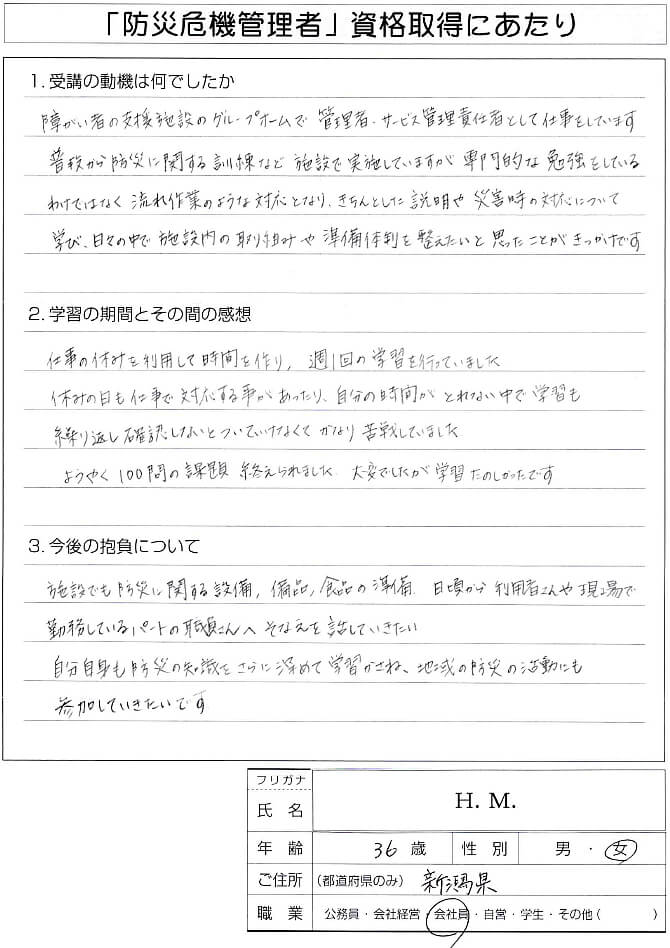 「防災危機管理者」資格取得にあたり
1. 受講の動機は何でしたか
障がい者の支援施設のグループホームで 管理者、サービス管理責任者として仕事をしています
普段から防災に関する訓練など 施設で実施していますが 専門的な勉強をしている
わけではなく 流れ作業のような対応となり、きちんとした説明や 災害時の対応について
学び、日々の中で 施設内の取り組みや 準備体制を整えたいと思ったことがきっかけです
2. 学習の期間とその間の感想
仕事の休みを利用して時間を作り, 週1回の学習を行っていました
休みの日も仕事で対応する事があったり、自分の時間が とれない中で学習も
繰り返し確認しないとついていけなくて かなり苦戦していました
ようやく100問の課題 終えられました 大変でしたが学習たのしかったです
3. 今後の抱負について
施設でも防災に関する設備, 備品, 食品の準備. 日頃から利用者さんや現場で
勤務しているパートの職員さんへそなえを話していきたい
自分自身も防災の知識をさらに深めて学習かさね、地域の防災の活動にも
参加していきたいです
フリガナ
氏名 H. M.
年齢 36歳 性別 男・女
ご住所 (都道府県のみ) 新潟県
職業 公務員・会社経営・会社員・自営・学生・その他( )